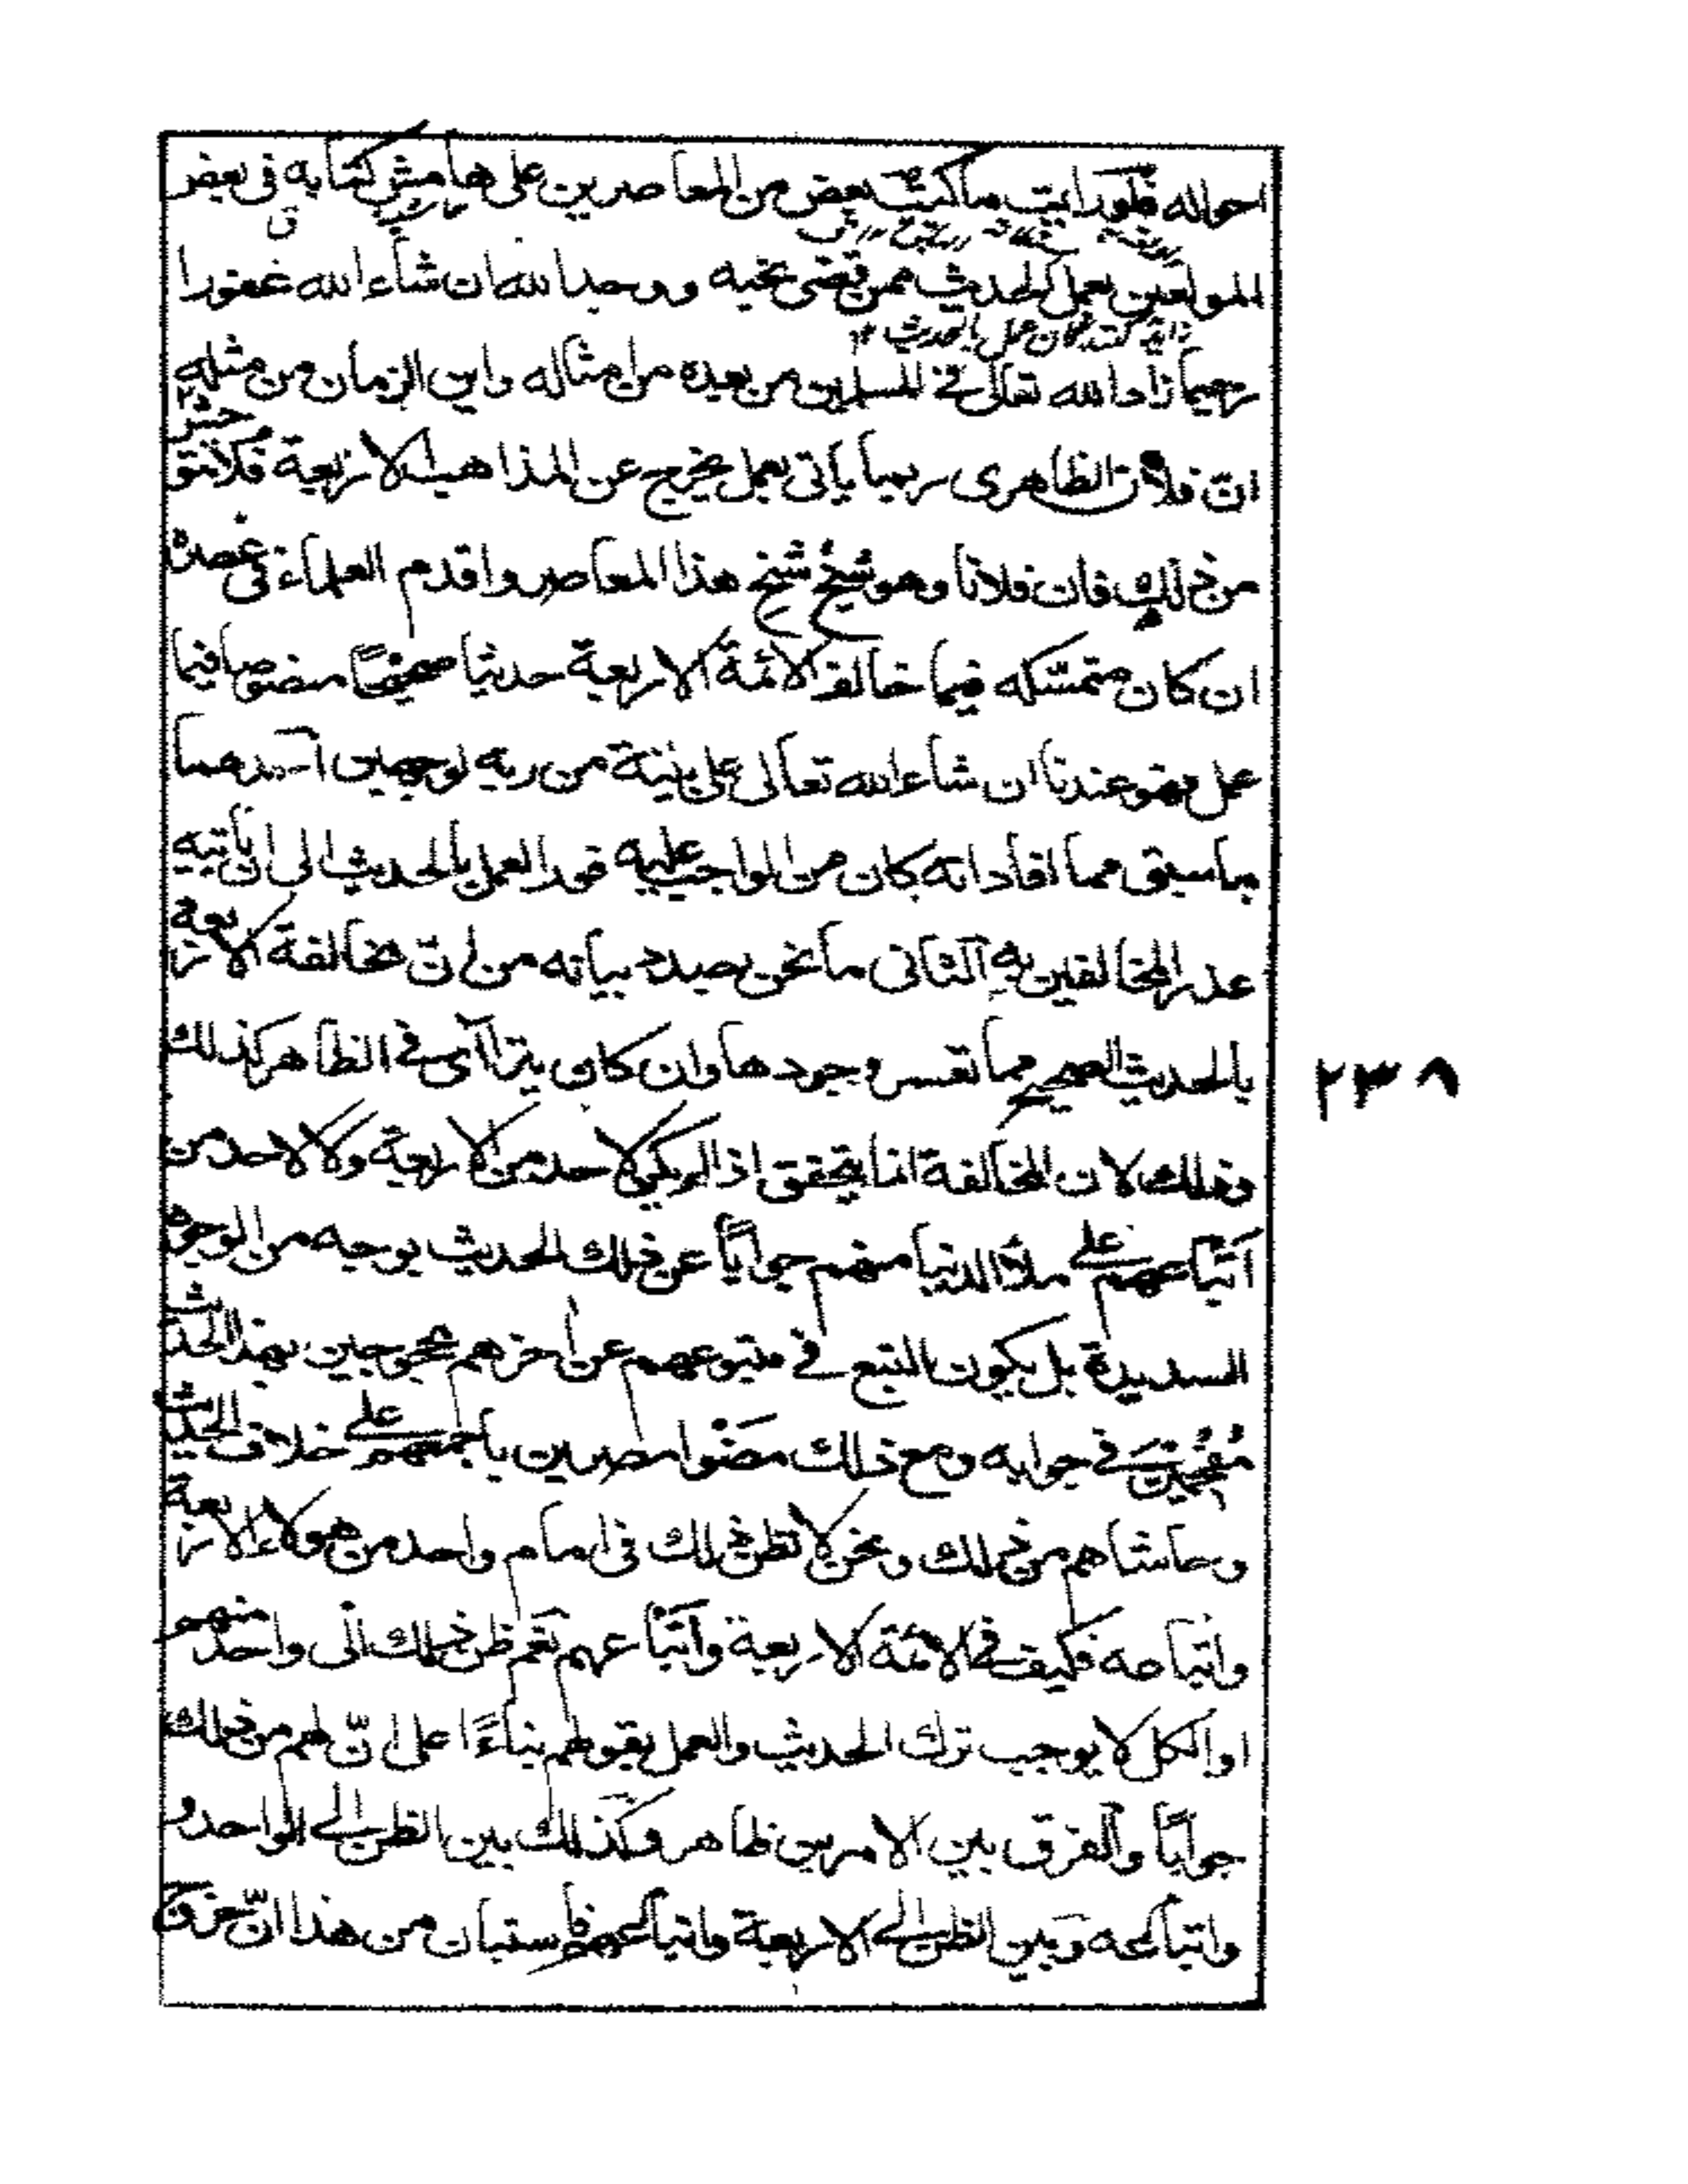 احواله فلو رايت ما كتب بعض من المعاصرين على هامش كتابه فى بعض
المولعين بعمل الحديث ممن قضى نحبه ووجد الله ان شاء الله غفورا
رحيما زاد الله تعالى فى المسلمين من بعده من امثاله واين الزمان من مثله
ان فلان الظاهرى ربما ياتى بعمل يخرج عن المذاهب الاربعة فلا تتوحش
من ذلك فان فلانا وهو شيخ شيخ هذا المعاصر واقدم العلماء فى عصره
ان كان متمسكه فيما خالف الائمة الاربعة حديثا صحيحًا منصوصا فيما
عمل فهو عندنا ان شاء الله تعالى على بينة من ربه لوجهين احدهما
ما سبق مما افاد انه كان من الواجب عليه فور العمل بالحديث الى ان ياتيه
عذر المخالفين به الثانى ما نحن بصدد بيانه من ان مخالفة الاربعة
بالحديث الصحيح مما تعسر وجودها وان كان يتراآى فى الظاهر كذلك
وذلك لان المخالفة انما يتحقق اذا لم يكن لاحد من الاربعة ولا لاحد من
اتباعهم على ملأ الدنيا منهم جوابًا عن ذلك الحديث بوجه من الوجوه
السديدة بل يكون التبع فى متبوعهم عن اخرهم محجوجين بهذا الحديث
مُفحمين فى جوابه ومع ذلك مضوا مصرين باجمعهم على خلاف الحديث
وحاشاهم من ذلك ونحن لا نظن ذلك فى امام واحد من هولاء الاربعة
واتباعه فكيف فى الائمة الاربعة واتباعهم نعم ظن ذلك الى واحد منهم
او الكل لا يوجب ترك الحديث والعمل بقولهم بناءً على انّ لهم من ذلك
جوابًا والفرق بين الامرين ظاهر وكذلك بين الظن الى الواحد و
واتباعه وبين الظن الى الاربعة واتباعهم فاستبان من هذا انّ خروج
٢٣٨